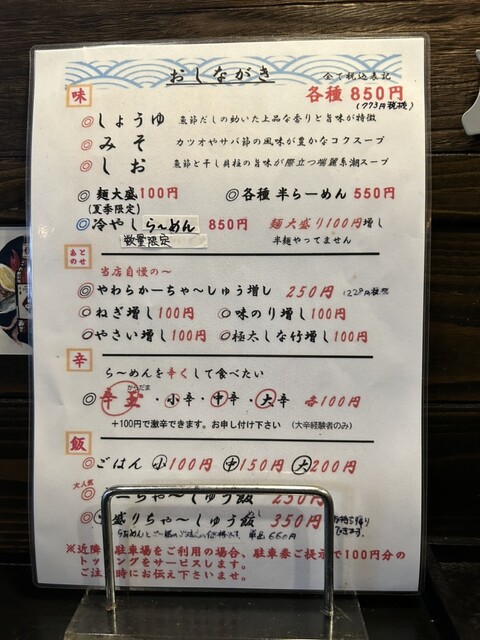 おしながき 全て税込表記
味 各種 850円
(773円税抜)
◎しょうゆ 魚節だしの効いた上品な香りと旨味が特徴
◎みそ カツオやサバ節の風味が豊かなコクスープ
◎しお 魚節と干し貝柱の旨味が際立つ瑞麗系潮スープ
◎麺大盛100円 ◎各種 半らーめん 550円
(夏季限定)
◎冷やしら〜めん 850円 麺大盛り100円増し
数量限定 半麺やってません
あとのせ
当店自慢の〜
◎やわらかーちゃ〜しゅう増し 250円
◎ねぎ増し100円 ◎味のり増し100円
◎やさい増し100円 ◎極太しな竹増し100円
辛
ら〜めんを辛くして食べたい
からだま
◎辛玉・小辛・中辛・大辛 各100円
+100円で激辛できます。お申し付け下さい (大辛経験者のみ)
飯
◎ごはん 小100円 中150円 大200円
大人気
ーちゃ〜しゅう飯 250円
盛りちゃ〜しゅう飯 350円
単品 550円
※近隣 駐車場をご利用の場合、駐車券ご提示で100円分の
トッピングをサービスします。
ご注文時にお伝え下さいませ。